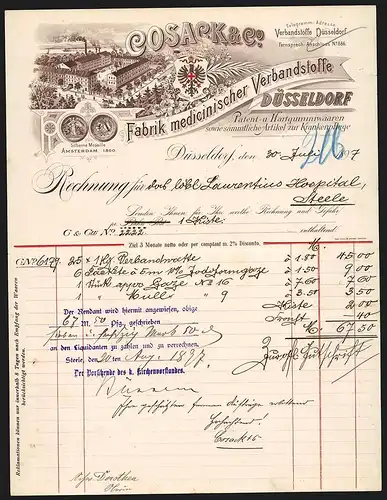 Telegramm-Adresse
Verbandstoffe Düsseldorf
Fernsprech-Anschluss No 886
COSACK & Co.
Fabrik medicinischer Verbandstoffe
DÜSSELDORF
Patent- u. Hartgummiwaaren
sowie sämmtliche Artikel zur Krankenpflege
Silberne Medaille
AMSTERDAM 1890
Düsseldorf, den 30 Juli 1897
Rechnung für das löbl. Laurentius Hospital,
Steele
Senden Ihnen für Ihre werthe Rechnung und Gefahr
1 Kiste
C & Cie No 2222 enthaltend
Ziel 3 Monate netto oder per comptant m. 2% Disconto.
25 1 Kg. Verbandwatte 1.80 45.00
6 5 m Jodoformgaze 1.50 9.00
1 Gaze No 16 7.60 7.60
1 Mull 9 3.50 3.50
Kiste 2.00
67.50
Der Rendant wird hiermit angewiesen, obige
67 M. 50 Pfg. geschrieben
sieben u. sechszig Mark 50 d.
an den Liquidanten zu zahlen und zu verrechnen.
Steele, den 20 Aug. 1897.
Der Vorsitzende des k. Kirchenvorstandes.
Hochachtend!
Cosack & Co
Dorothea
Reklamationen können nur innerhalb 8 Tagen nach Empfang der Waaren
berücksichtigt werden.